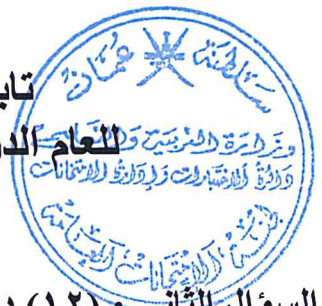 سلطنة عمان
تاب
وزارة التربية والتعليم
للعام الد
دائرة الاختبارات وإدارة الامتحانات
لجنة الامتحانات العامة
السؤال الثاني